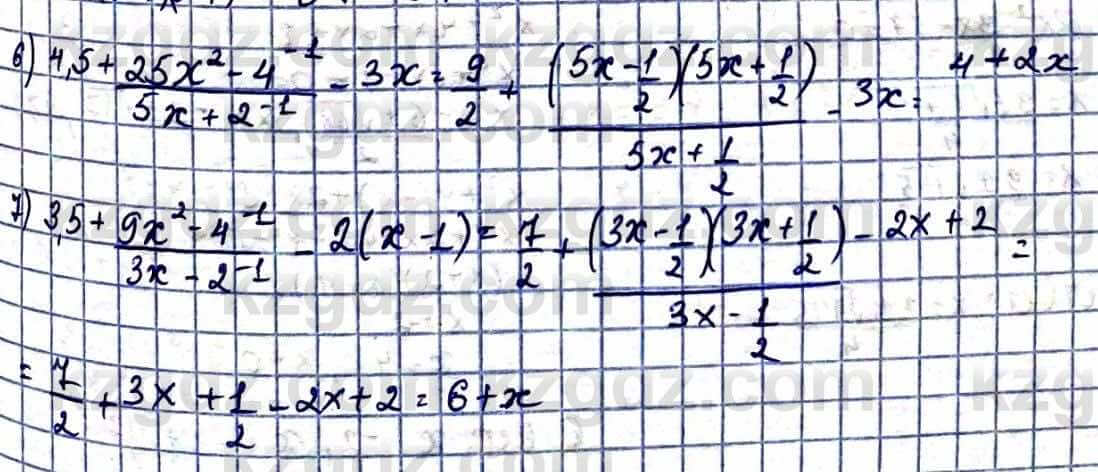 6) 4,5 + (25x² - 4⁻¹)/(5x + 2⁻¹) - 3x = 9/2 + ((5x - 1/2)(5x + 1/2))/(5x + 1/2) - 3x = 4 + 2x
7) 3,5 + (9x² - 4⁻¹)/(3x - 2⁻¹) - 2(x - 1) = 7/2 + ((3x - 1/2)(3x + 1/2))/(3x - 1/2) - 2x + 2 =
= 7/2 + 3x + 1/2 - 2x + 2 = 6 + x
kzgdz.com